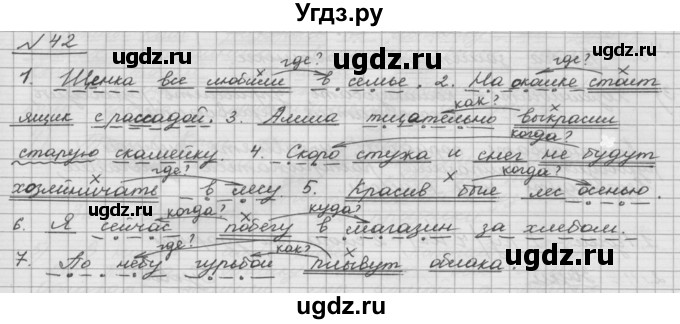 Угдз.ру
№ 42
где? где?
1. Щенка все любили в семье. 2. На окошке стоит
как?
ящик с рассадой. 3. Алиша тщательно выкрасил
когда?
старую скамейку. 4. Скоро стужа и снег не будут
где? когда?
хозяйничать в лесу. 5. Красив был лес осенью.
когда? куда?
6. Я сейчас побегу в магазин за хлебом.
где? как?
7. По небу гурьбой плывут облака.
ugdz.ru ugdz.ru
ugdz.ru ugdz.ru
ugdz.ru ugdz.ru
ugdz.ru ugdz.ru
ugdz.ru ugdz.ru
ugdz.ru